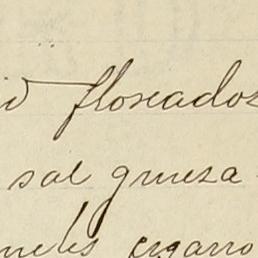 id floseados
sal gruesa
cigarro